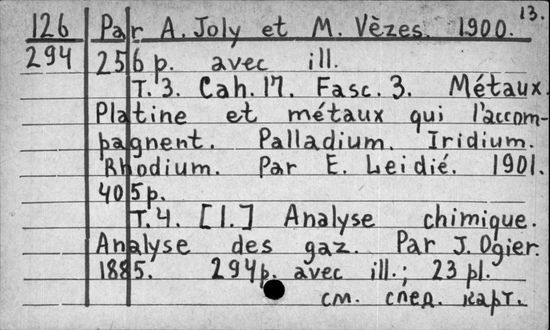 13.
126 Par A. Joly et M. Vèzes. 1900.
294 256 p. avec ill.
T. 3. Cah. 17. Fasc. 3. Métaux.
Platine et métaux qui l'accom-
pagnent. Palladium. Iridium.
Rhodium. Par E. Leidié. 1901.
405 p.
T. 4. [1.] Analyse chimique.
Analyse des gaz. Par J. Ogier.
1885. 294 p. avec ill.; 23 pl.
см. след. карт.